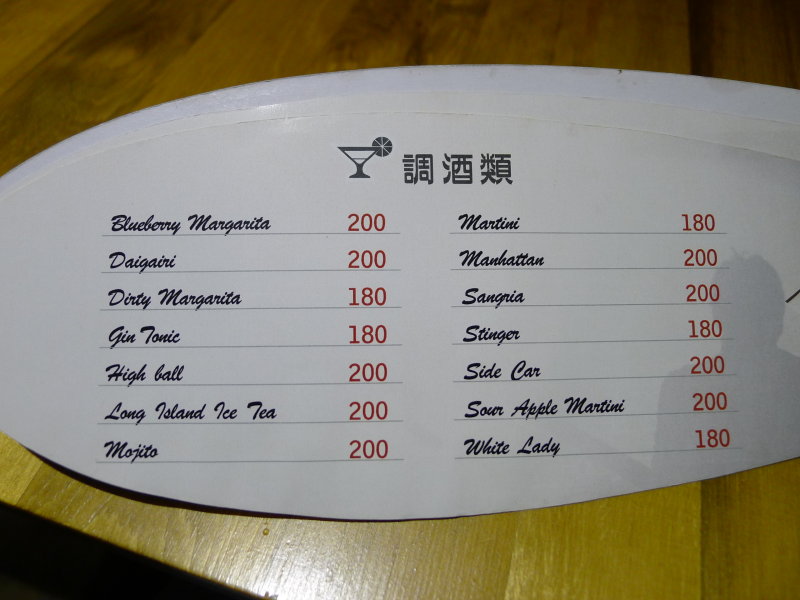 調酒類
Blueberry Margarita 200
Daigairi 200
Dirty Margarita 180
Gin Tonic 180
High ball 200
Long Island Ice Tea 200
Mojito 200
Martini 180
Manhattan 200
Sangria 200
Stinger 180
Side Car 200
Sour Apple Martini 200
White Lady 180